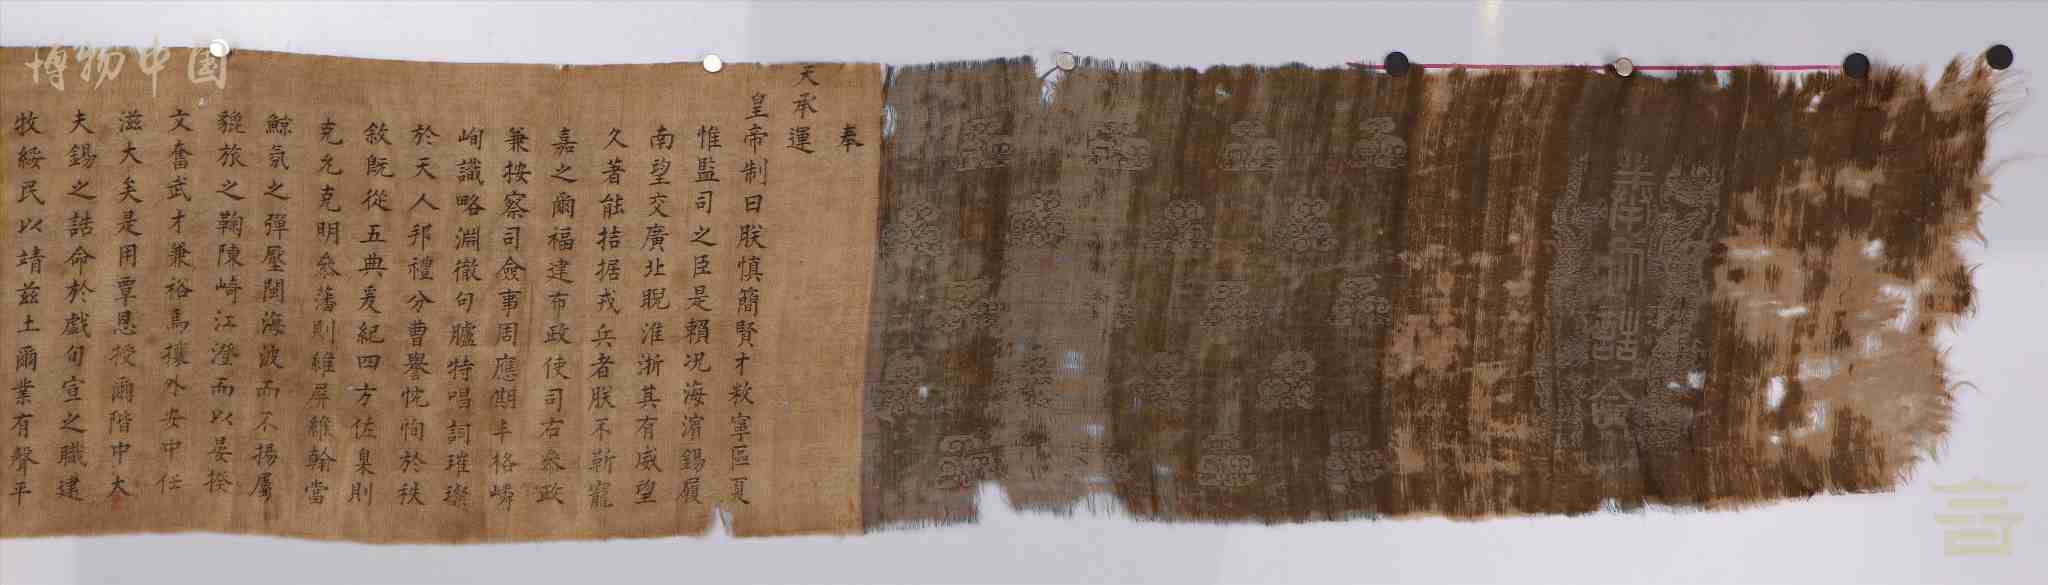 奉天誥命
奉
天承運
皇帝制曰朕慎簡賢才敉寧區夏
惟監司之臣是賴况海濵錫履
南望交廣北睨淮浙其有威望
久著能拮据戎兵者朕不靳寵
嘉之爾福建布政使司右叅政
兼按察司僉事周應期丰格嶙
峋識略淵徹句臚特唱詞璀璨
於天人邦禮分曹譽恍恂於秩
敘既從五典爰紀四方佐臬則
克允克明叅藩則維屏維翰當
鯨氛之彈壓閩海波而不揚屬
貔旅之鞠陳崎江澄而以晏揆
文奮武才兼裕焉攘外安中任
滋大矣是用覃恩授爾階中大
夫錫之誥命於戲旬宣之職建
牧綏民以靖茲土爾業有聲平
博物中国